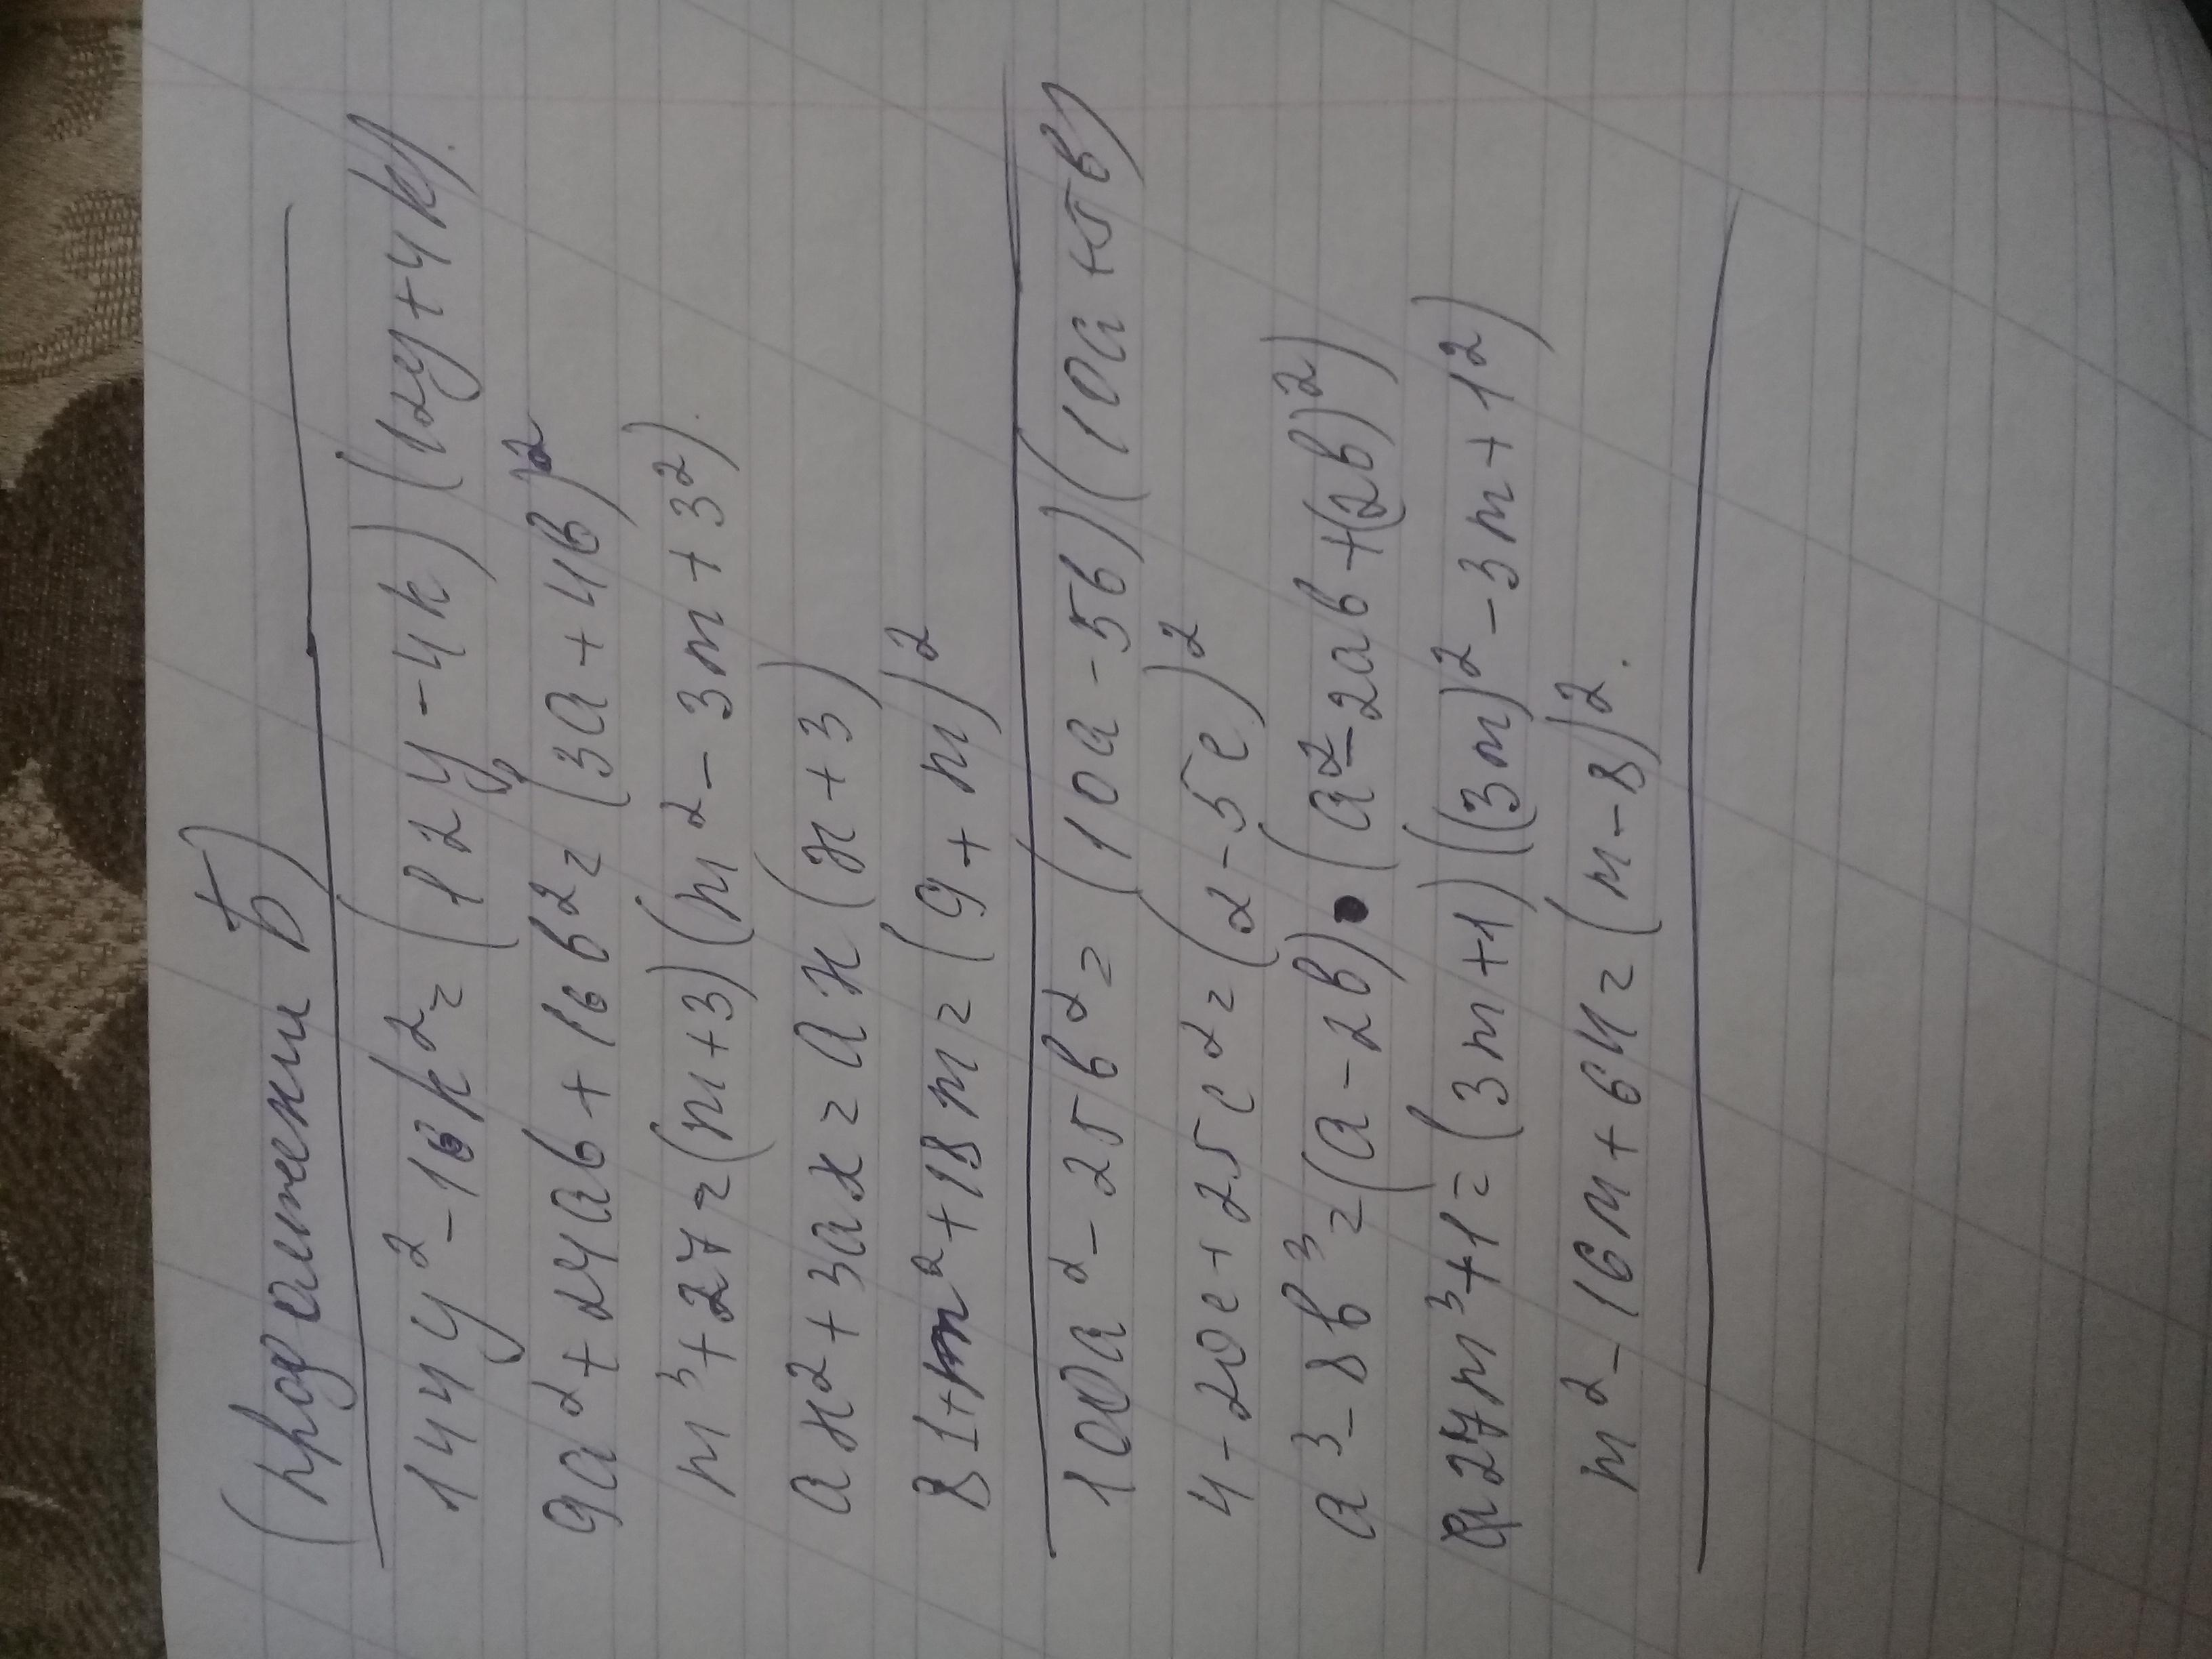 (продолжени Б)
144y² - 16k² = (12y - 4k)(12y + 4k).
9a² + 24ab + 16b² = (3a + 4b)²
m³ + 27 = (m + 3)(m² - 3m + 3²).
ax² + 3ax = ax(x + 3)
81 + m² + 18m = (9 + m)²
100a² - 25b² = (10a - 5b)(10a + 5b)
4 - 20c + 25c² = (2 - 5c)²
a³ - 8b³ = (a - 2b)·(a² - 2ab + (2b)²)
27m³ + 1 = (3m + 1)((3m)² - 3m + 1²)
m² - 16m + 64 = (m - 8)².